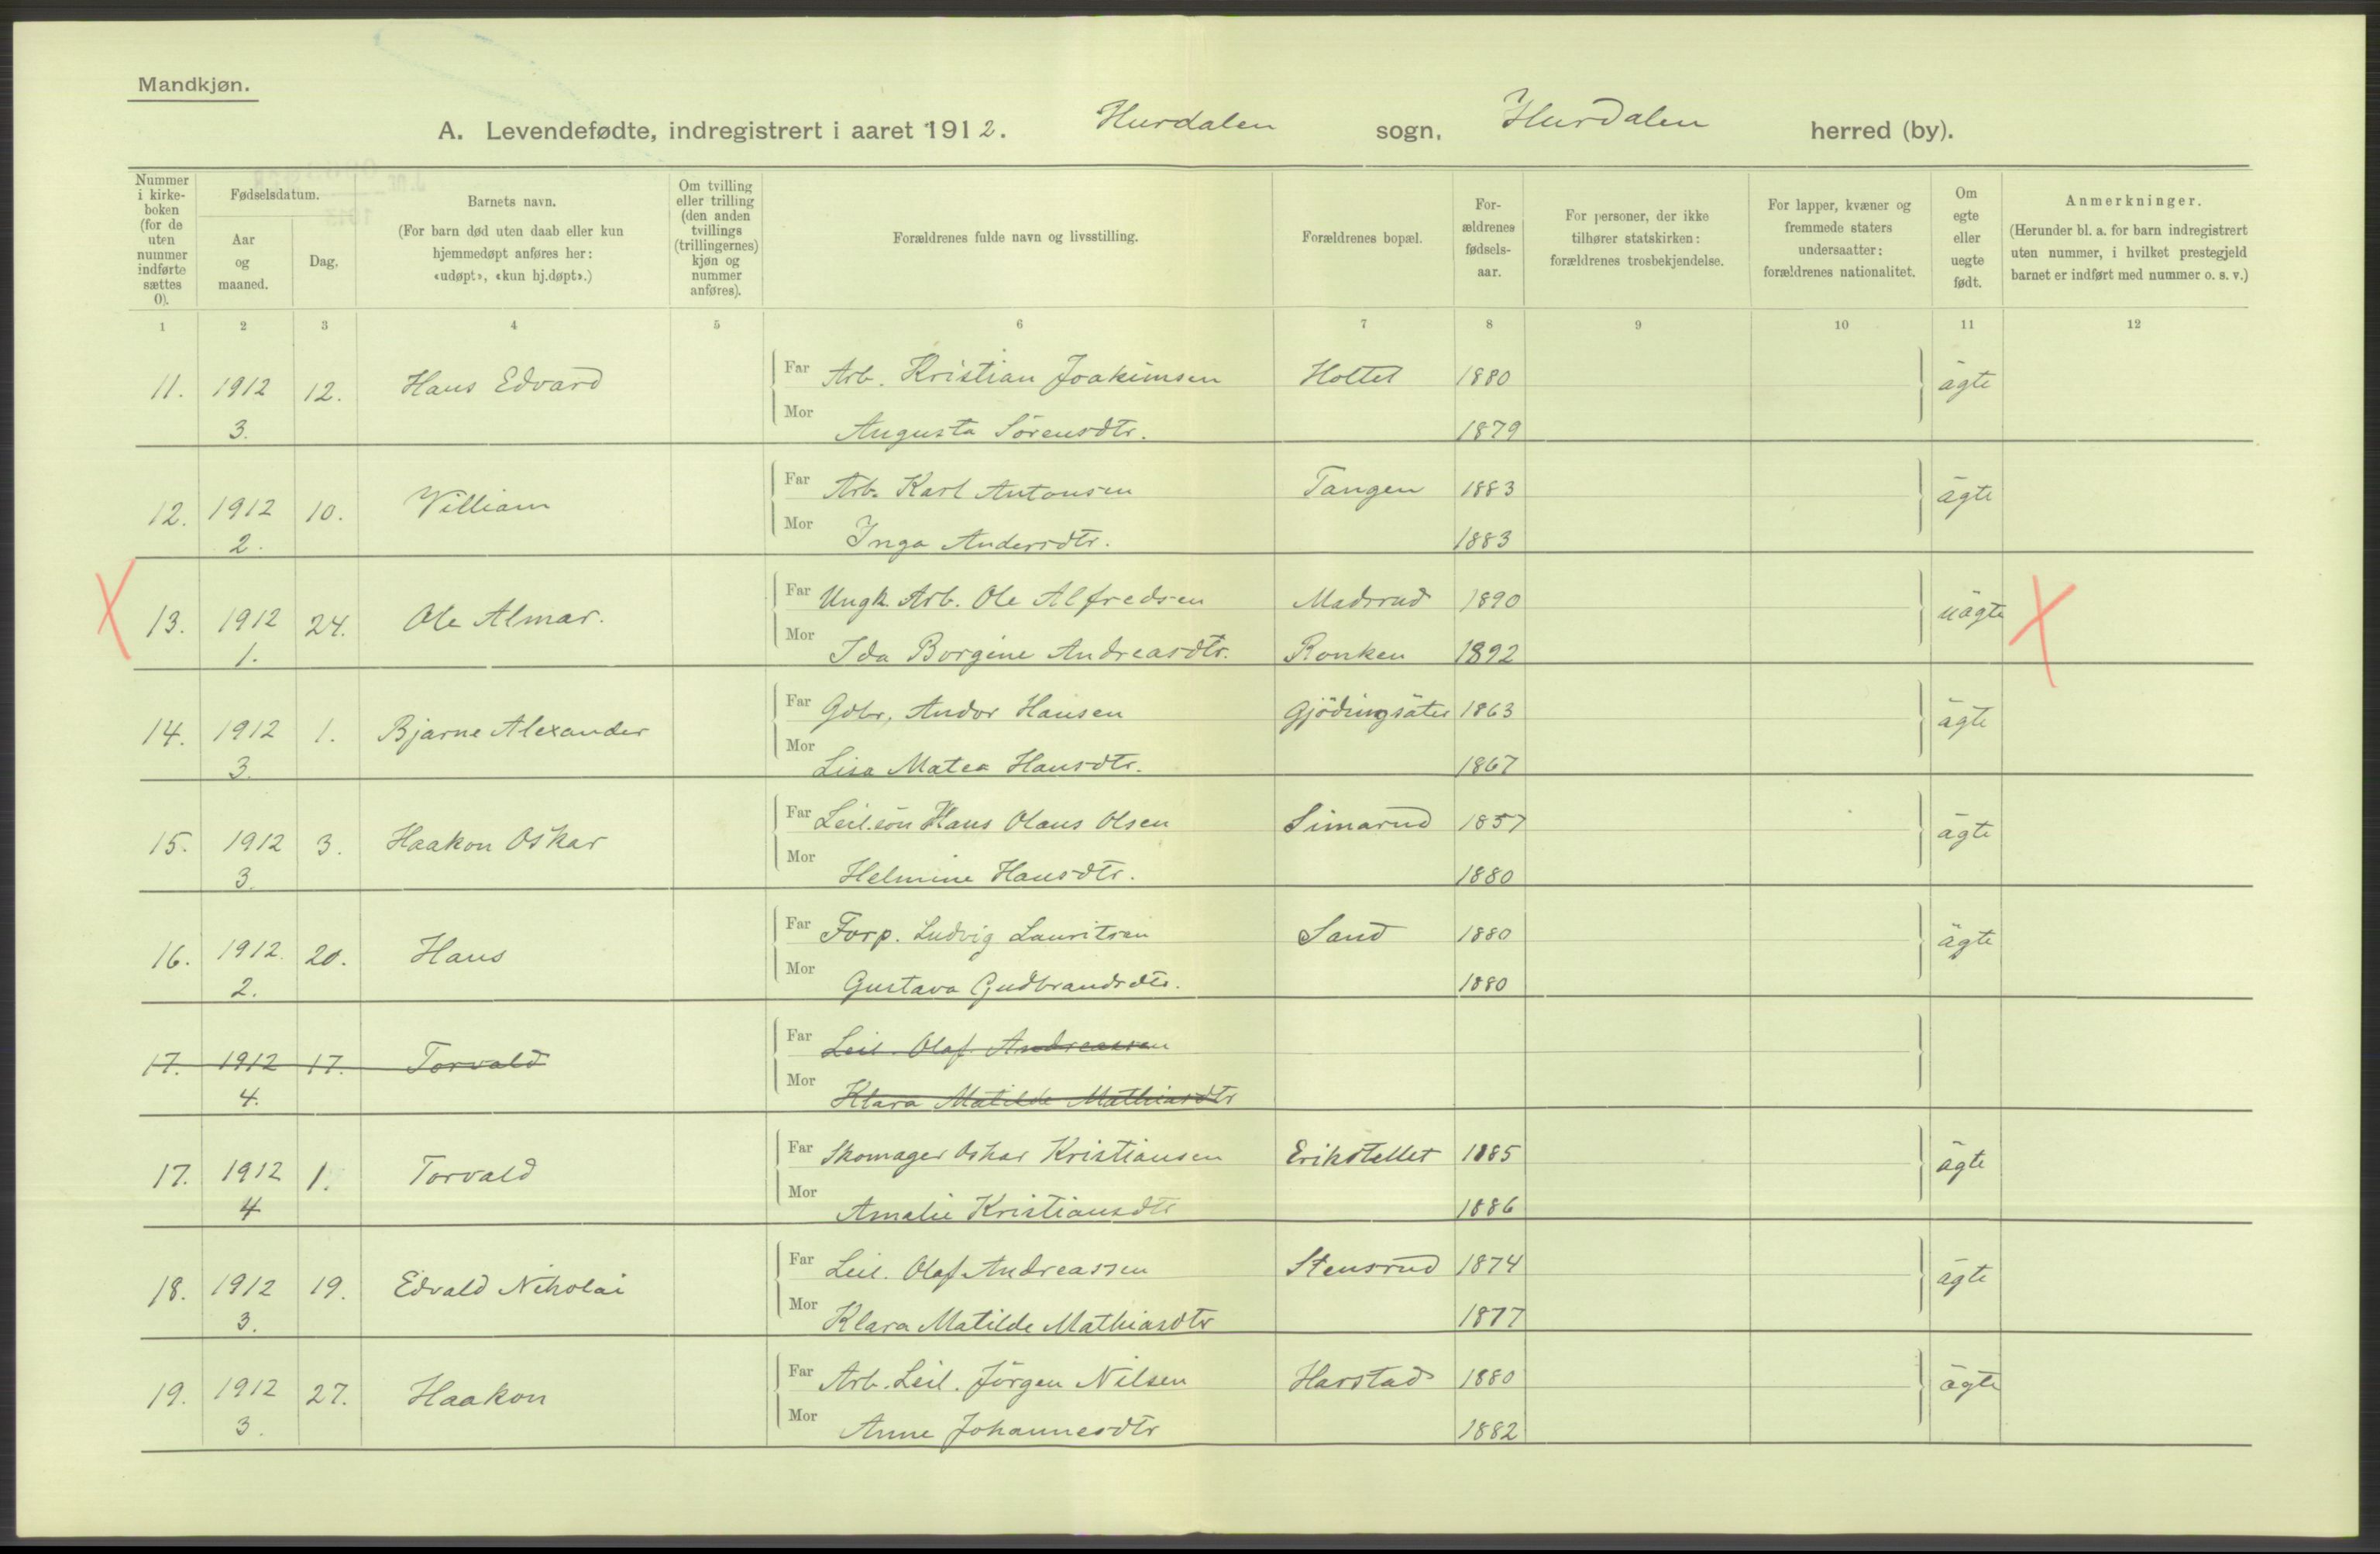 Mandkjøn.
A. Levendefødte, indregistrert i aaret 1912. Hurdalen sogn, Hurdalen herred (by).
Nummer i kirke-boken (for de uten nummer indførte sættes 0).
Fødselsdatum.
Aar og maaned.
Dag.
Barnets navn.
(For barn død uten daab eller kun hjemmedøpt anføres her: «udøpt», «kun hj.døpt».)
Om tvilling eller trilling (den anden tvillings (trillingernes) kjøn og nummer anføres).
Forældrenes fulde navn og livsstilling.
Forældrenes bopæl.
For-ældrenes fødsels-aar.
For personer, der ikke tilhører statskirken: forældrenes trosbekjendelse.
For lapper, kvæner og fremmede staters undersaatter: forældrenes nationalitet.
Om egte eller uegte født.
Anmerkninger.
(Herunder bl. a. for barn indregistrert uten nummer, i hvilket prestegjeld barnet er indført med nummer o. s. v.)
1 2 3 4 5 6 7 8 9 10 11 12
11. 1912 12. Hans Edvard Far Arb. Kristian Joakimsen Holtet 1880 ägte
3. Mor Augusta Sörensdtr. 1879
12. 1912 10. William Far Arb. Karl Antonsen Tangen 1883 ägte
2. Mor Inga Andersdtr. 1883
X 13. 1912 24. Ole Almar. Far Ungk. Arb. Ole Alfredsen Madsrud 1890 uägte X
1. Mor Ida Borgine Andreasdtr. Ronken 1892
14. 1912 1. Bjarne Alexander Far Gdbr. Andor Hansen Gjödingsäter 1863 ägte
3. Mor Lisa Matea Hansdtr. 1867
15. 1912 3. Haakon Oskar Far Leil.sön Hans Olaus Olsen Simarud 1857 ägte
3. Mor Helmine Hansdtr. 1880
16. 1912. 20. Hans Far Forp. Ludvig Lauritsen Sand 1880 ägte
2. Mor Gustava Gudbrandsdtr. 1880
17. 1912 17. Torvald Far Leil. Olaf Andreassen
4. Mor Klara Matilde Mathiasdtr
17. 1912 1. Torvald Far Skomager Oskar Kristiansen Erikstellet 1885 ägte
4 Mor Amalie Kristiansdtr 1886
18. 1912 19. Edvald Nikolai Far Leil. Olaf Andreassen Stensrud 1874 ägte
3. Mor Klara Matilde Mathiasdtr 1877
19. 1912 27. Haakon Far Arb. Leil. Jörgen Nilsen Harstad 1880 ägte
3. Mor Anne Johannesdtr 1882